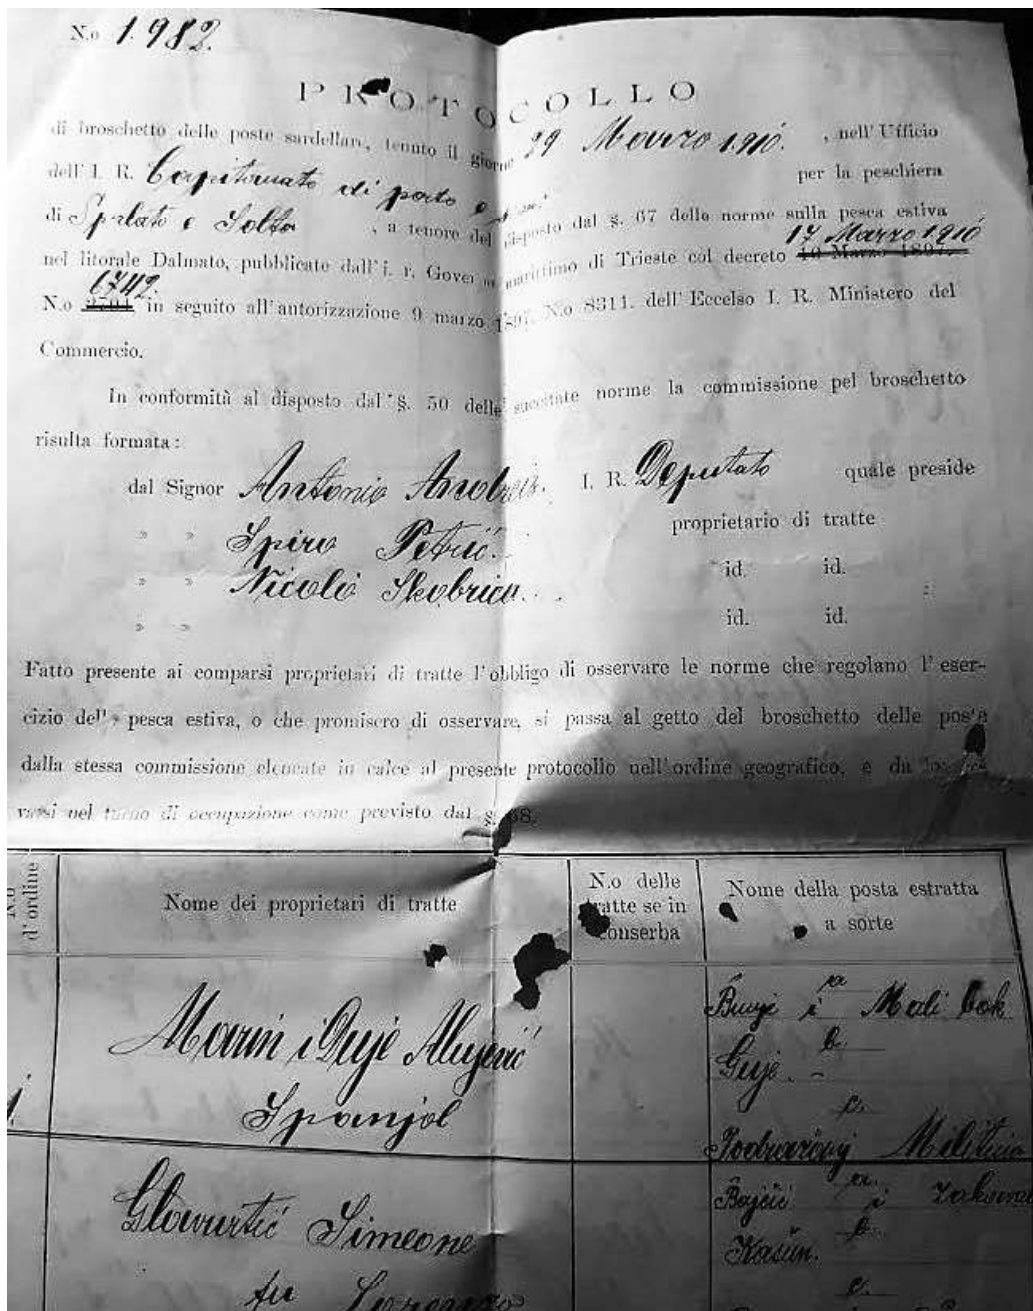 N.o 1982.
PROTOCOLLO
di broschetto delle poste sardellari, tenuto il giorno 29 Marzo 1910. , nell' Ufficio
dell' I. R. Capitanato di porto e per la peschiera
di Spalato e Solta , a tenore del disposto dal §. 67 delle norme sulla pesca estiva
17 Marzo 1910
nel litorale Dalmato, pubblicate dall' i. r. Governo marittimo di Trieste col decreto 10 Marzo 1897.
6742.
N.o in seguito all' autorizzazione 9 marzo 1897. N.o 8311. dell' Eccelso I. R. Ministero del
Commercio.
In conformità al disposto dal §. 50 delle succitate norme la commissione pel broschetto
risulta formata :
dal Signor Antonio I. R. Deputato quale preside
» » Spiro Petrić. proprietario di tratte
» » Nicolò id. id.
» » id. id. :
Fatto presente ai comparsi proprietari di tratte l' obbligo di osservare le norme che regolano l' eser-
cizio del pesca estiva, o che promisero di osservare, si passa al getto del broschetto delle poste
dalla stessa commissione elencate in calce al presente protocollo nell' ordine geografico, e da
varsi nel turno di occupazione come previsto dal §. 68.
N.o d' ordine
Nome dei proprietari di tratte
N.o delle
tratte se in
conserba
Nome della posta estratta
a sorte
1.
Marin i Duje Alujević
Spanjol
a
i Mali bok
b.
Guje. -
c.
Glavurtić Simeone
fu Lorenzo
a.
Bajčić i
b.
Kašun.
c.